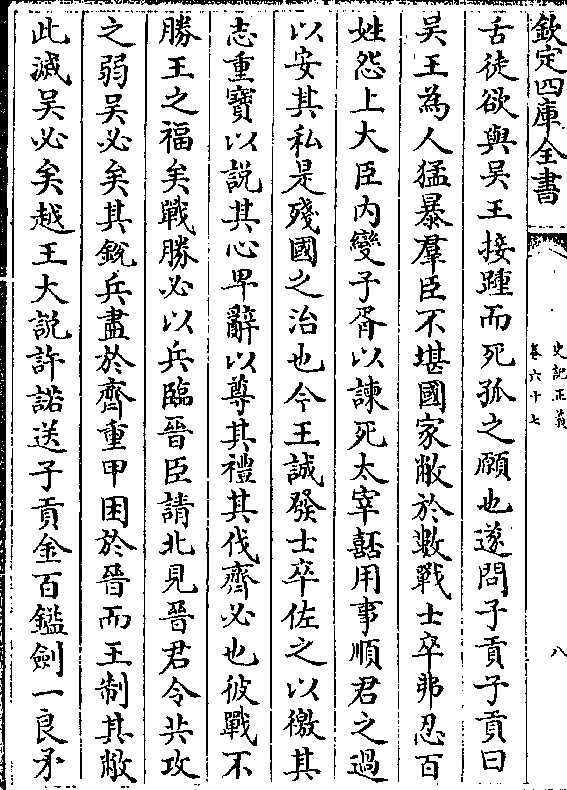 欽定四庫全書
史記正義
卷六十七
八
舌徒欲與吳王接踵而死孤之願也遂問子貢子貢曰
吳王為人猛暴羣臣不堪國家敝於數戰士卒弗忍百
姓怨上大臣内變子胥以諫死太宰嚭用事順君之過
以安其私是殘國之治也今王誠發士卒佐之以徼其
志重寶以説其心卑辭以尊其禮其伐齊必也彼戰不
勝王之福矣戰勝必以兵臨晉臣請北見晉君令共攻
之弱吳必矣其銳兵盡於齊重甲困於晉而王制其敝
此滅吳必矣越王大説許諾送子貢金百鎰劍一良矛